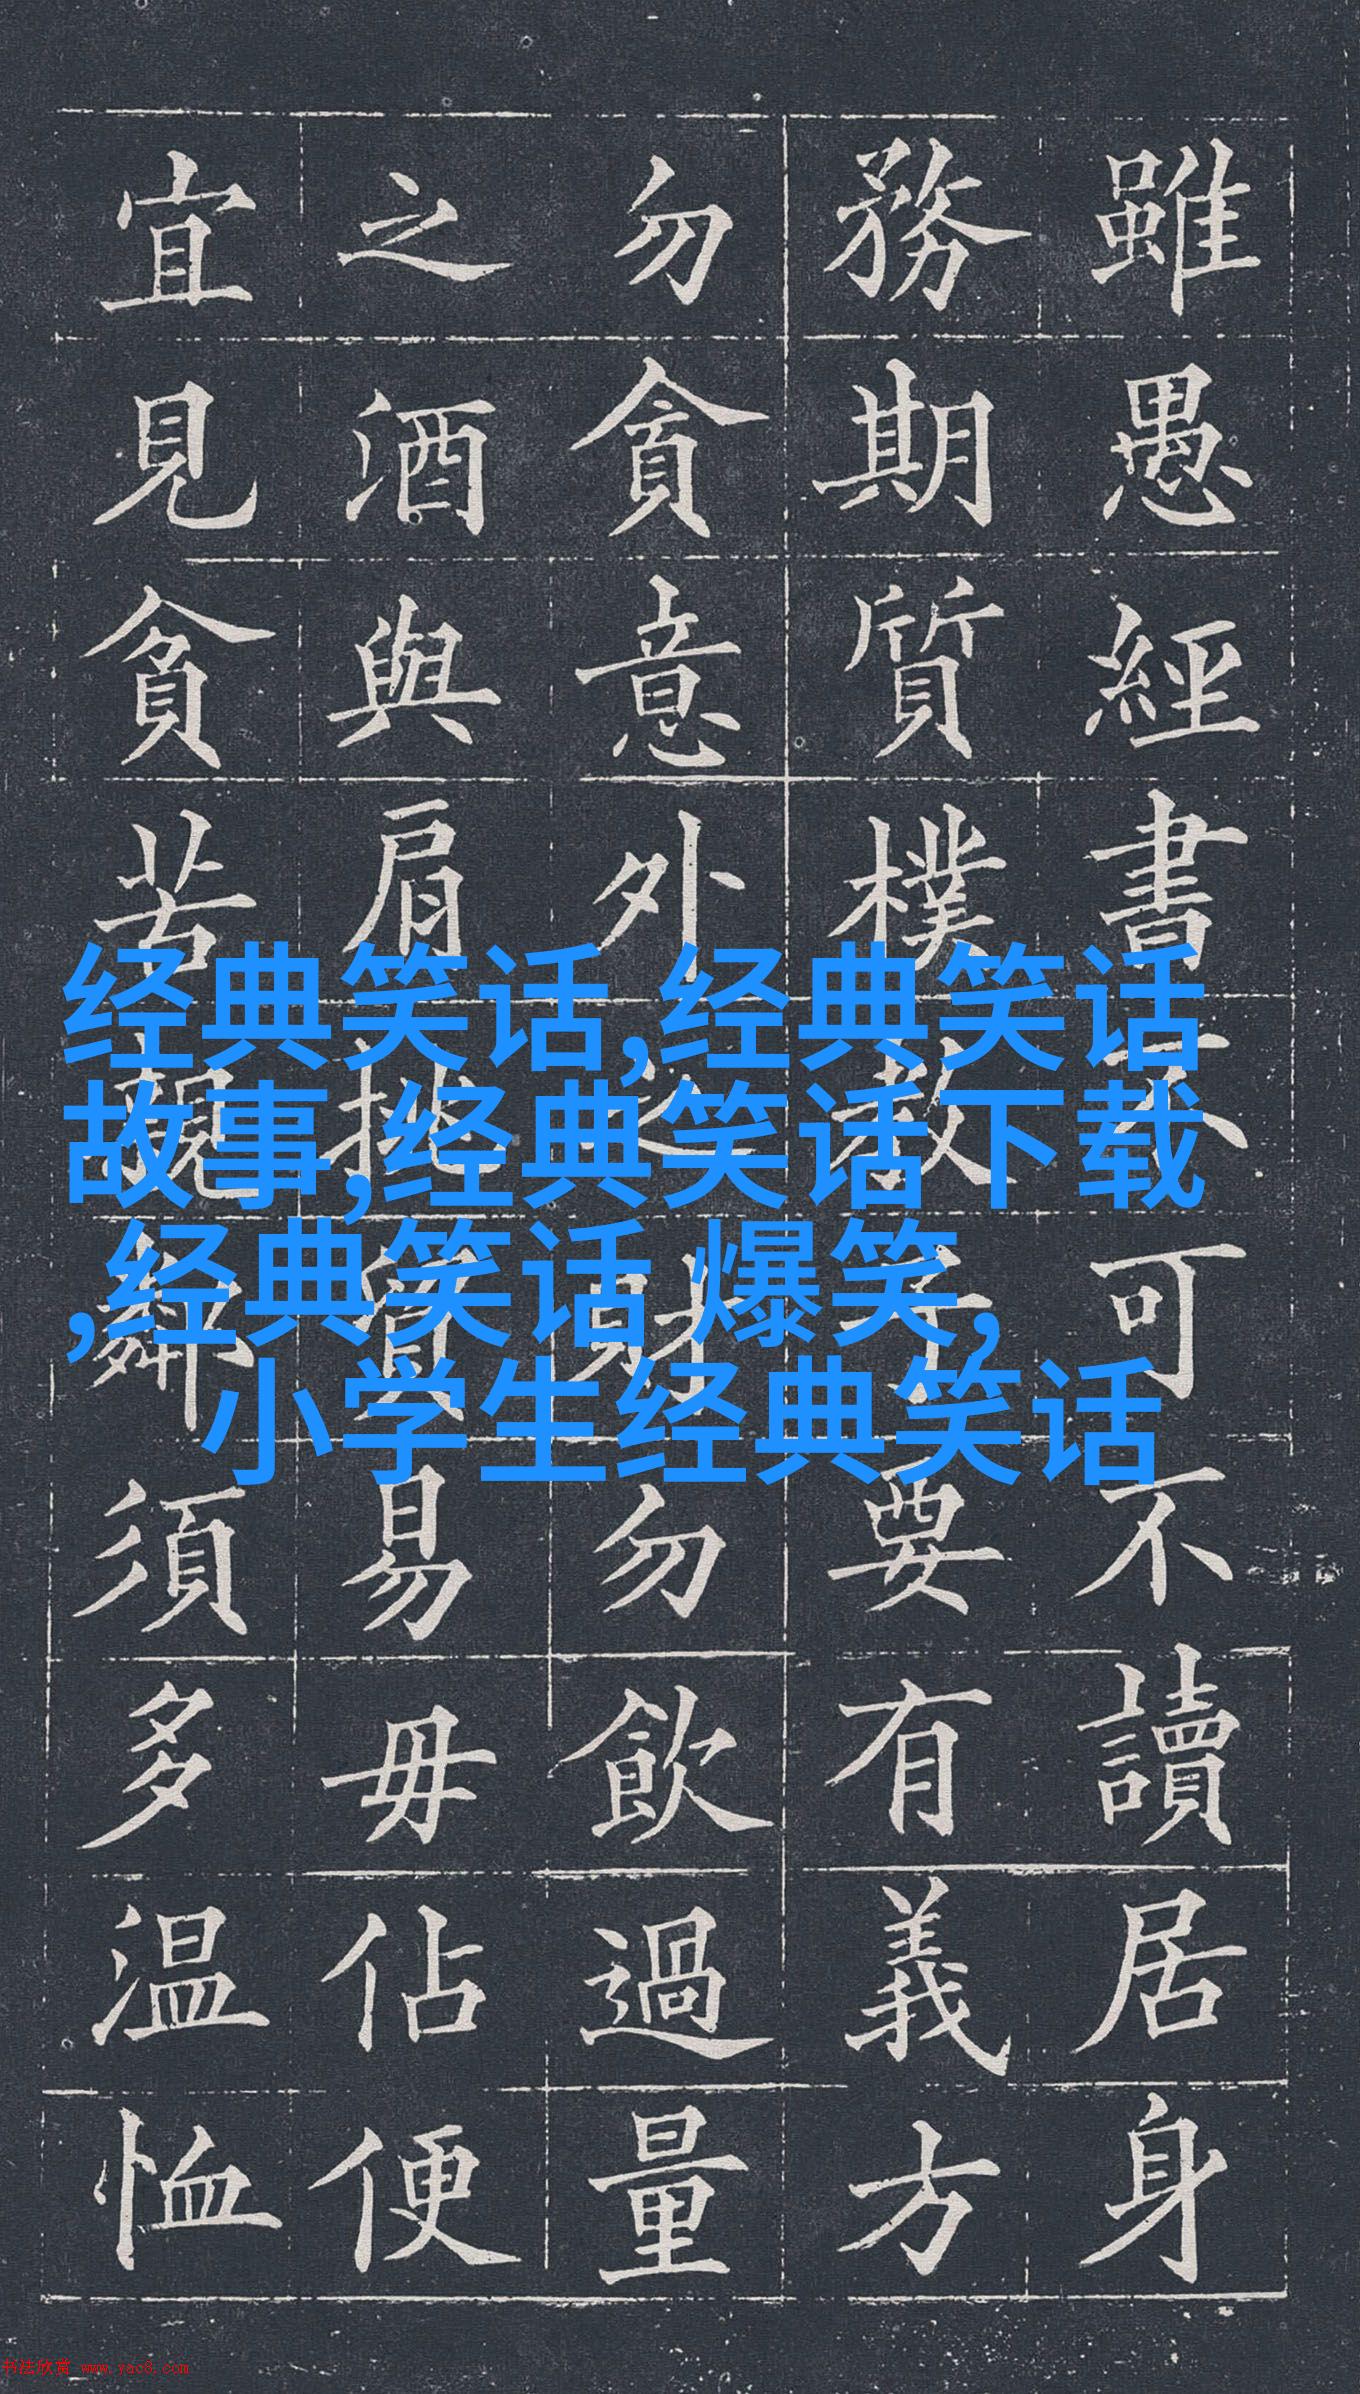 雖愚經書不可不讀居身
務期質樸教子要有義方
勿貪意外之財勿飲過量
之酒與肩挑貿易毋佔便
宜見貧苦親鄰須多温恤
经典笑话,经典笑话
故事,经典笑话下载
,经典笑话 爆笑,
小学生经典笑话
书法欣赏 www.yac8.com